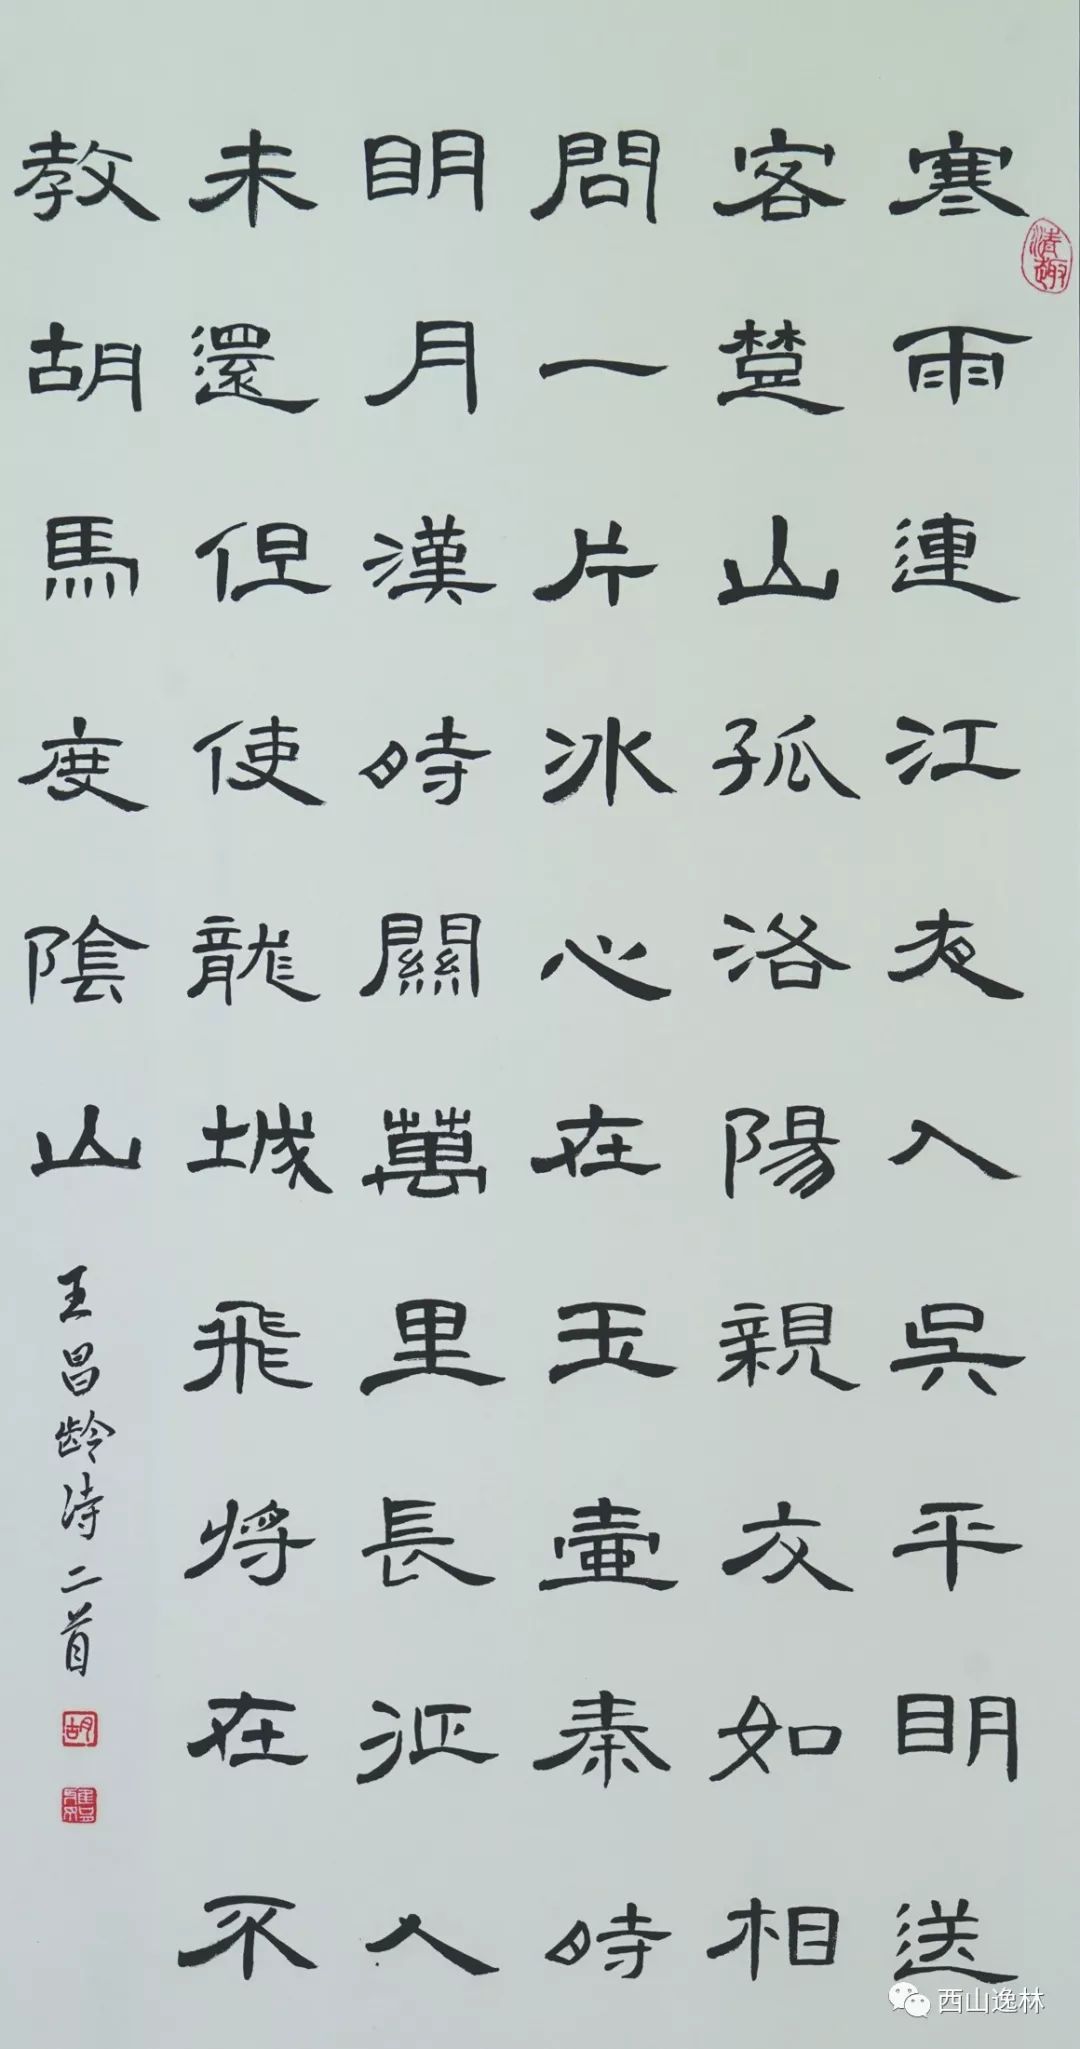 清趣
寒雨連江夜入吳平明送
客楚山孤洛陽親友如相
問一片冰心在玉壺秦時
明月漢時關萬里長征人
未還但使龍城飛將在不
教胡馬度陰山
王昌龄诗二首
胡
西山逸林